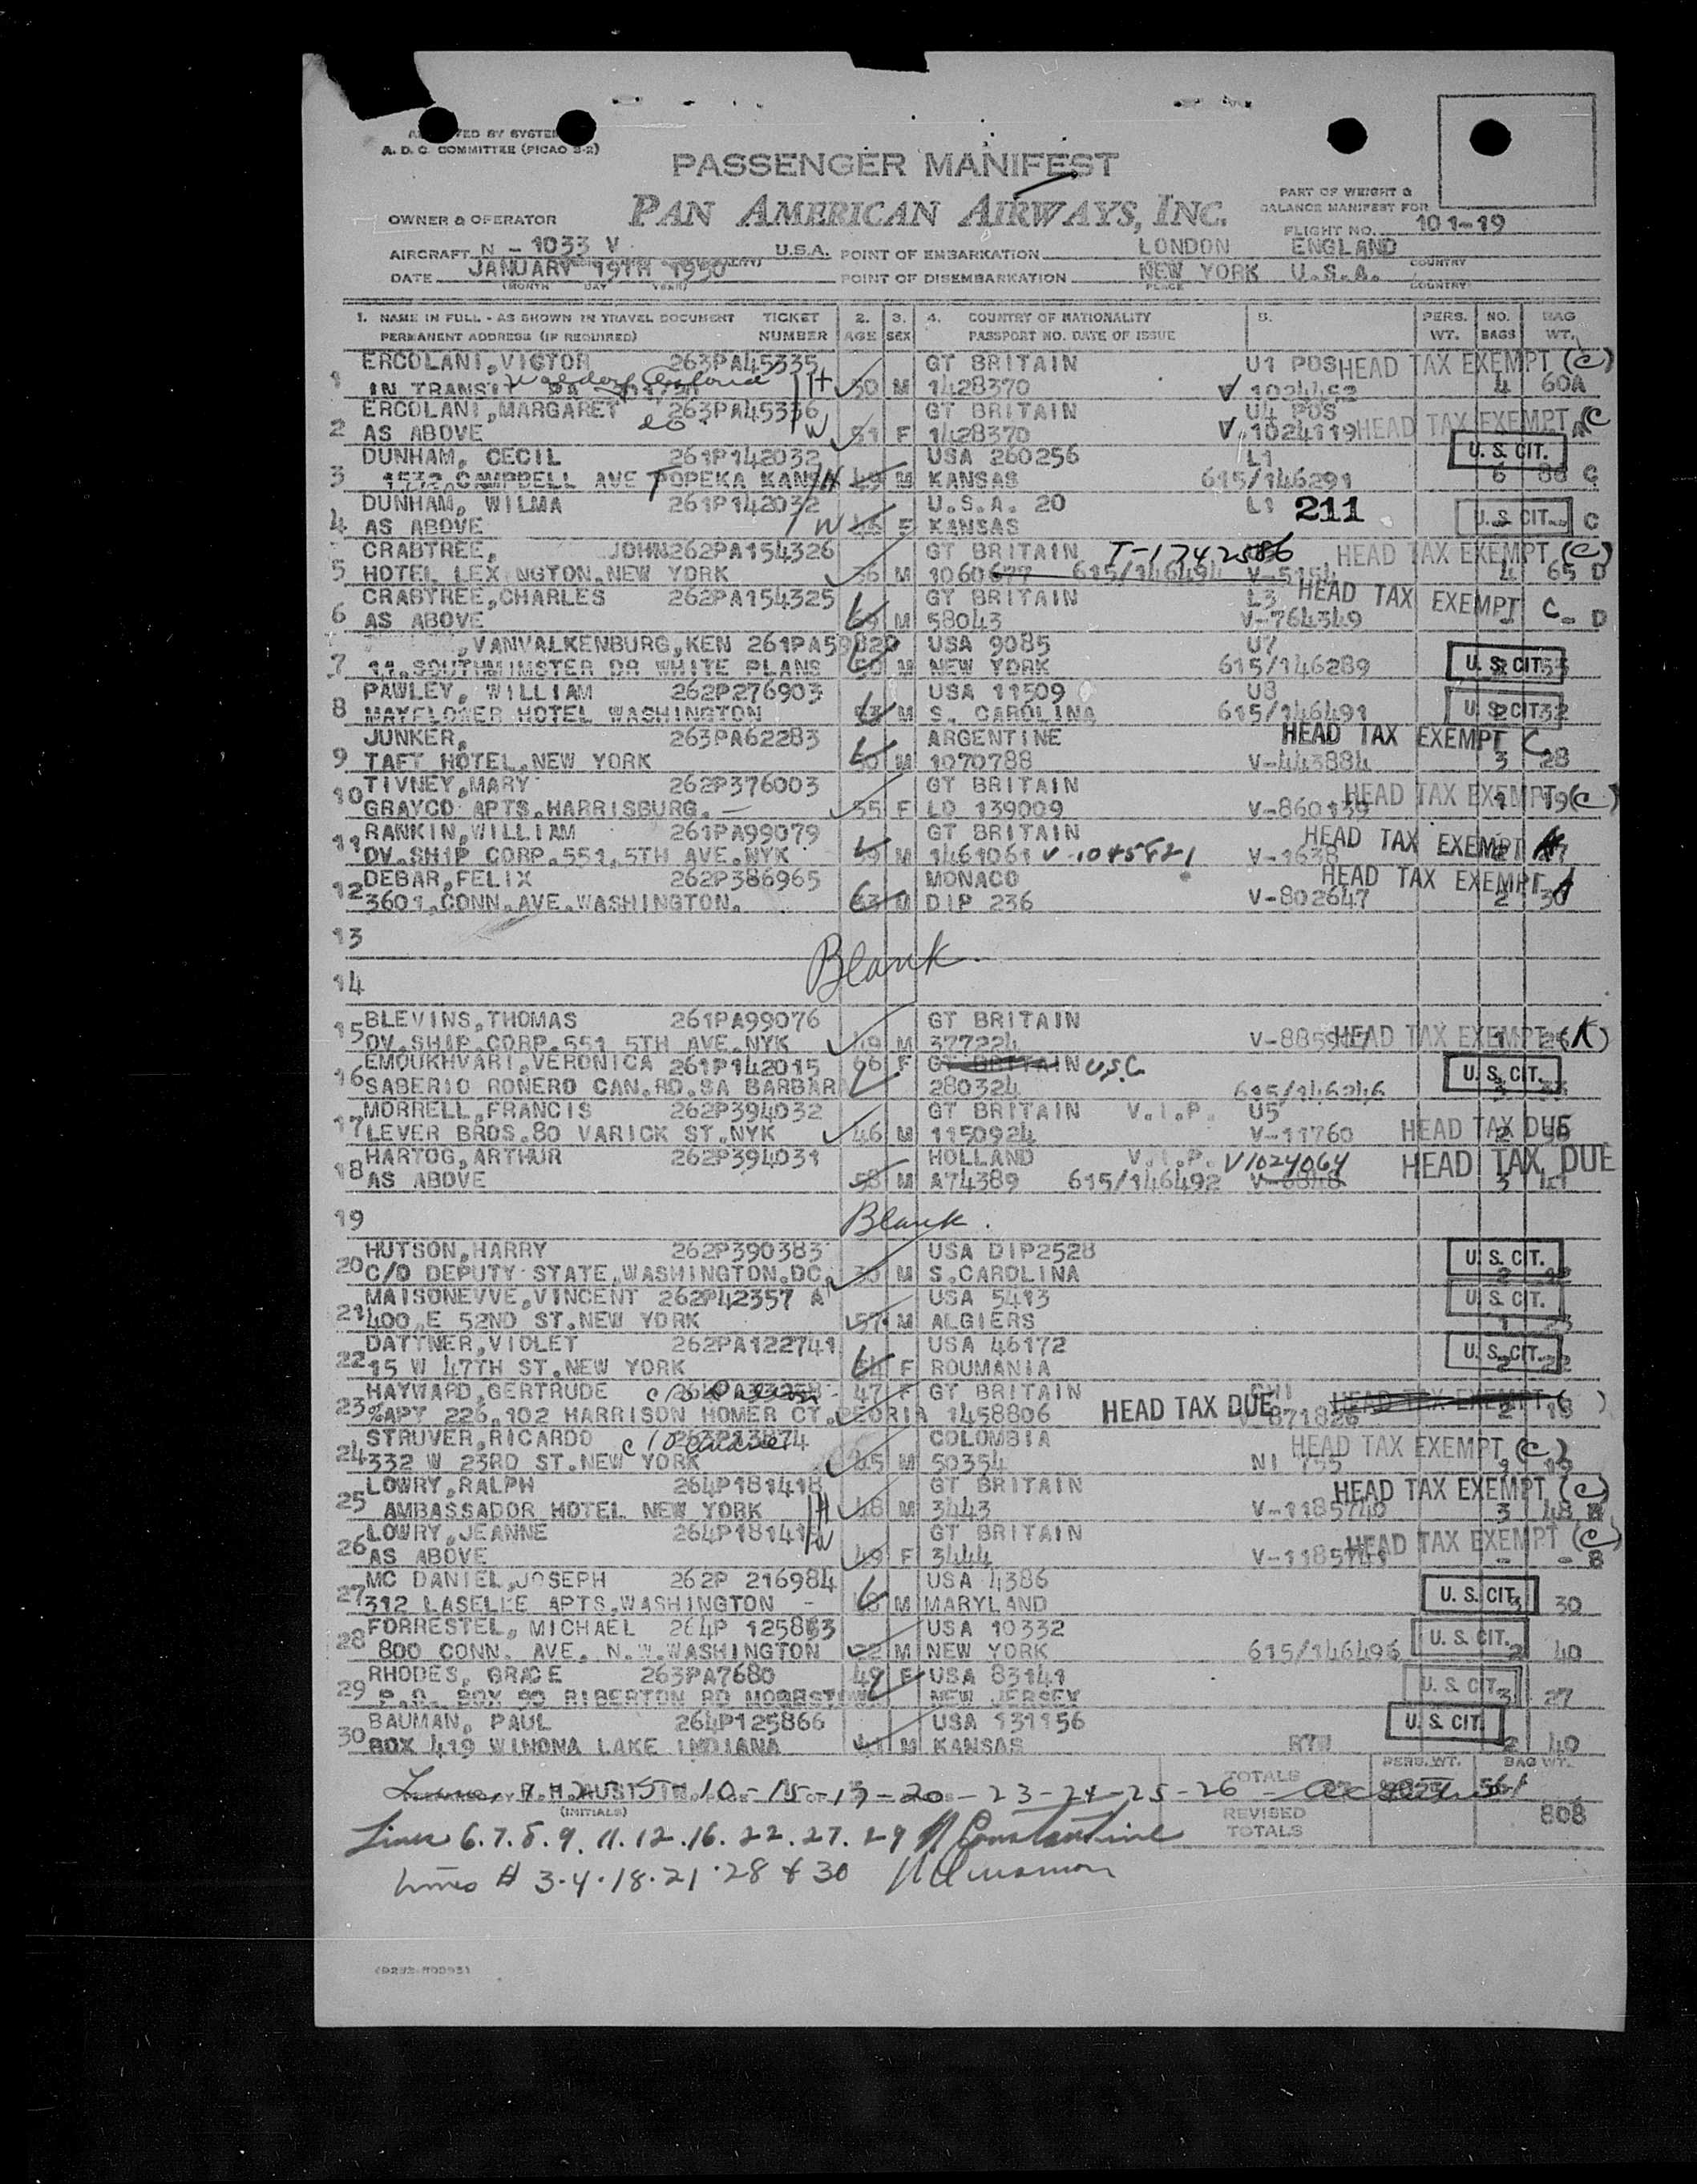 A. D. C. COMMITTEE (PICAO 3-2)
PASSENGER MANIFEST
PAN AMERICAN AIRWAYS, INC.
PART OF WEIGHT &
BALANCE MANIFEST FOR
OWNER & OPERATOR
FLIGHT NO. 101-19
AIRCRAFT N - 1033 V U.S.A. POINT OF EMBARKATION LONDON ENGLAND
DATE JANUARY 19TH 1950 POINT OF DISEMBARKATION NEW YORK U.S.A.
(MONTH DAY YEAR) PLACE COUNTRY
1. NAME IN FULL - AS SHOWN IN TRAVEL DOCUMENT TICKET 2. 3. 4. COUNTRY OF NATIONALITY 5. PERS. NO. BAG
PERMANENT ADDRESS (IF REQUIRED) NUMBER AGE SEX PASSPORT NO. DATE OF ISSUE WT. BAGS WT.
ERCOLANI, VICTOR 263PA45335 GT BRITAIN U1 POS HEAD TAX EXEMPT (C)
1 IN TRANSIT H 50 M 1428370 V 4 60A
ERCOLANI, MARGARET 263PA45336 GT BRITAIN U4 POS
2 AS ABOVE W 51 F 1428370 V 1024119 HEAD TAX EXEMPT C
DUNHAM, CECIL 261P142032 USA 260256 L1 U. S. CIT.
3 CAMPBELL AVE TOPEKA KANS H 49 M KANSAS 615/146291 6 86 C
DUNHAM, WILMA 261P142032 U.S.A. 20 L1 211
4 AS ABOVE W F KANSAS U. S. CIT. C
CRABTREE, JOHN 262PA154326 GT BRITAIN T-1742586 HEAD TAX EXEMPT (C)
5 HOTEL LEX NGTON, NEW YORK 36 M 1060677 615/146494 V-5154 4 65 D
CRABTREE, CHARLES 262PA154325 GT BRITAIN L3 HEAD TAX EXEMPT C
6 AS ABOVE 69 M 58043 V-764349 - D
,VANVALKENBURG, KEN 261PA59820 USA 9085 U7
7 11, SOUTHMINSTER DR WHITE PLANS 50 M NEW YORK 615/146289 U. S. CIT.
PAWLEY, WILLIAM 262P276903 USA 11509 U8
8 MAYFLOWER HOTEL WASHINGTON 53 M S. CAROLINA 615/146491 U. S. CIT. 32
JUNKER, 263PA62283 ARGENTINE HEAD TAX EXEMPT C
9 TAFT HOTEL, NEW YORK M 1070788 V-443884 3 28
TIVNEY, MARY 262P376003 GT BRITAIN
10 GRAYCO APTS. HARRISBURG. 55 F LO 139009 V-860139 HEAD TAX EXEMPT (C) 1 19
RANKIN, WILLIAM 261PA99079 GT BRITAIN HEAD TAX EXEMPT A
11 OV. SHIP CORP. 551, 5TH AVE. NYK M 1461061 V-1045821 V-1638
DEBAR, FELIX 262P386965 MONACO HEAD TAX EXEMPT A
12 3601, CONN. AVE. WASHINGTON. 63 M DIP 236 V-802647 2 30
13
Blank
14
BLEVINS, THOMAS 261PA99076 GT BRITAIN
15 OV. SHIP CORP. 551 5TH AVE. NYK 49 M 377224 HEAD TAX EXEMPT (A)
EMOUKHVARI, VERONICA 261P142015 66 F GT BRITAIN U.S.C. U. S. CIT.
16 SABERIO RONERO CAN. RD. SA BARBAR 280324 615/146246
MORRELL, FRANCIS 262P394032 GT BRITAIN V.I.P. U5
17 LEVER BROS. 80 VARICK ST. NYK 46 M 1150924 V-11760 HEAD TAX DUE
HARTOG, ARTHUR 262P394031 HOLLAND V.I.P. V1024064 HEAD TAX DUE
18 AS ABOVE 58 M A74389 615/146492 V-6848 3
19 Blank.
HUTSON, HARRY 262P390383 USA DIP2528 U. S. CIT.
20 C/O DEPUTY STATE, WASHINGTON. DC. M S. CAROLINA
MAISONEVVE, VINCENT 262P42357 A USA 5413 U. S. CIT.
21 400, E 52ND ST. NEW YORK 57 M ALGIERS 1 23
DATTNER, VIOLET 262PA122741 USA 46172 U. S. CIT.
22 15 W 47TH ST. NEW YORK F ROUMANIA 2 22
HAYWARD, GERTRUDE 47 F GT BRITAIN HEAD TAX EXEMPT ( )
23 %APT 226, 102 HARRISON HOMER CT. PEORIA 1458806 HEAD TAX DUE V-871826 2 18
STRUVER, RICARDO COLOMBIA HEAD TAX EXEMPT (C)
24 332 W 23RD ST. NEW YORK 45 M 50354 NI 755 19
LOWRY, RALPH 264P181418 GT BRITAIN HEAD TAX EXEMPT (C)
25 AMBASSADOR HOTEL NEW YORK H 48 M 3443 V-1185740 3 48 B
LOWRY, JEANNE GT BRITAIN HEAD TAX EXEMPT (C)
26 AS ABOVE W 49 F 3444 V-1185741 - - B
MC DANIEL, JOSEPH 262P 216984 USA 4386 U. S. CIT.
27 312 LASELLE APTS. WASHINGTON M MARYLAND 3 30
FORRESTEL, MICHAEL 264P 125863 USA 10332 U. S. CIT.
28 800 CONN. AVE. N. W. WASHINGTON 22 M NEW YORK 615/146496 2 40
RHODES, GRACE 263PA7680 49 F USA 83141 U. S. CIT.
29 P.O. BOX 50 RIBERTON RD MOORSTOWN NEW JERSEY 3 27
BAUMAN, PAUL 264P125866 USA 131156 U. S. CIT.
30 BOX 419 WINONA LAKE INDIANA M KANSAS RTW 2 40
TOTALS PERS. WT. BAG WT.
AUSTIN 10-15-17-20-23-24-25-26 561
(INITIALS) REVISED TOTALS 808
Lines 6.7.8.9.11.12.16.22.27.29 Constantine
Lines # 3.4.18.21.28 & 30